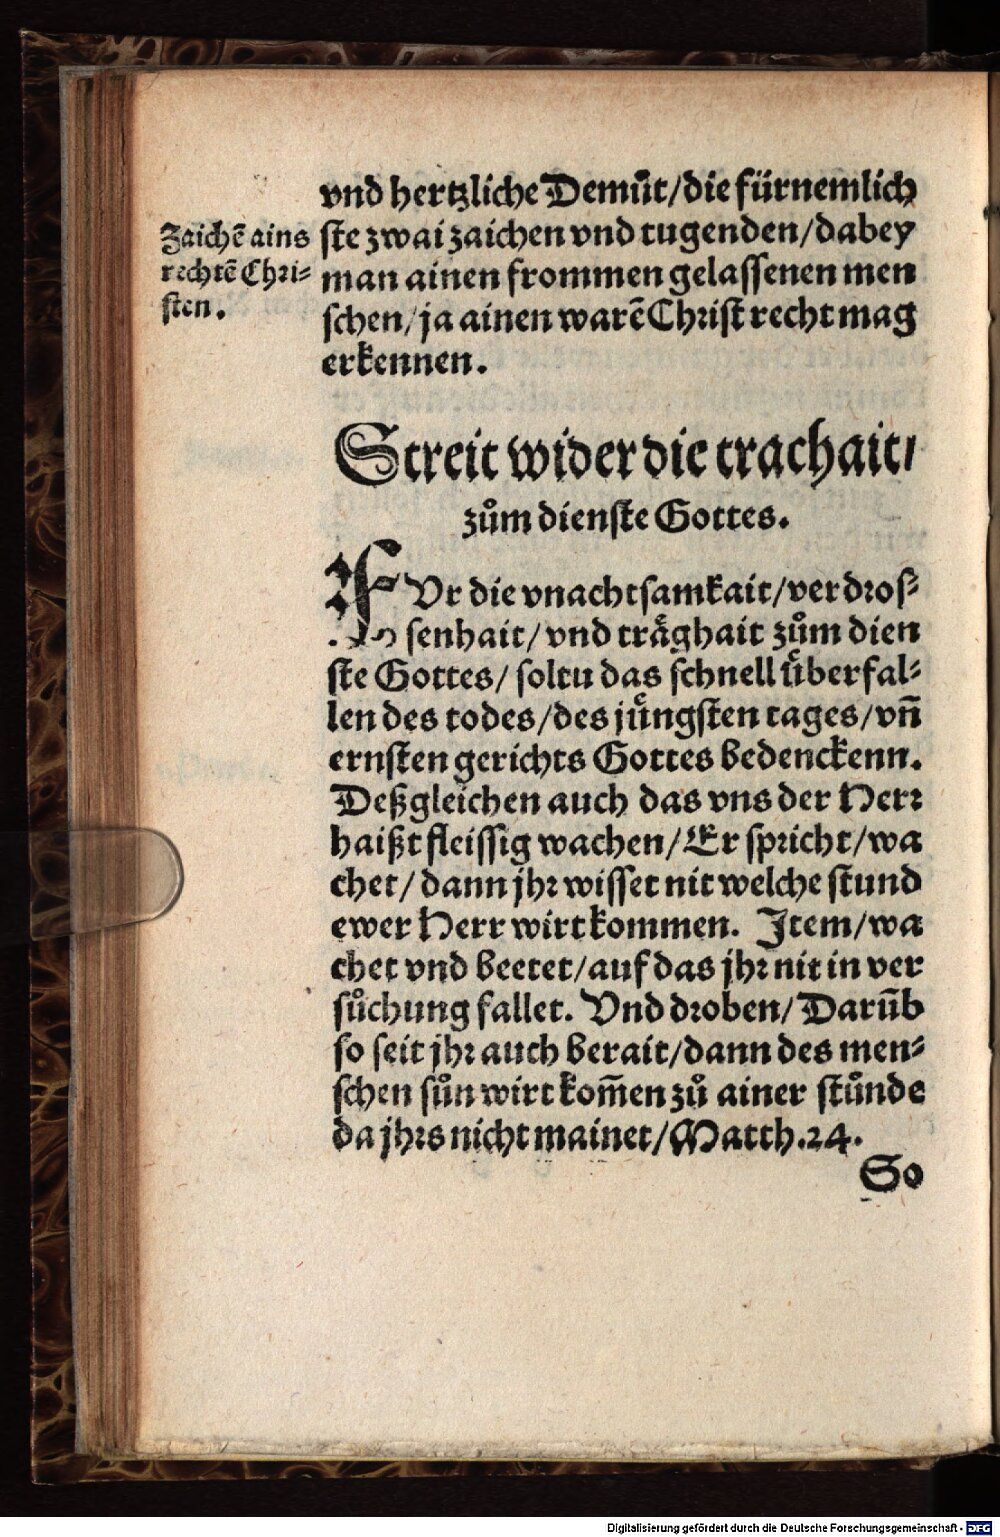 vnd hertzliche Demůt/die fürnemlich
Zaichẽ ains
rechtẽ Chri⸗
sten.
ste zwai zaichen vnd tugenden/dabey
man ainen frommen gelassenen men
schen/ja ainen warẽ Christ recht mag
erkennen.
Streit wider die trachait/
zům dienste Gottes.
FVr die vnachtsamkait/verdros⸗
senhait/vnd trȧ̈ghait zům dien
ste Gottes/ soltu das schnell überfal⸗
len des todes/des jüngsten tages/vñ
ernsten gerichts Gottes bedenckenn.
Deßgleichen auch das vns der Herr
haißt fleissig wachen/Er spricht/wa
chet/dann jhr wisset nit welche stund
ewer Herr wirt kommen. Item/wa
chet vnd beetet/auf das jhr nit in ver
sůchung fallet. Vnd droben/Darũb
so seit jhr auch berait/dann des men⸗
schen sůn wirt kom̃en zů ainer stůnde
da jhrs nicht mainet/Matth.24.
So
Digitalisierung gefördert durch die Deutsche Forschungsgemeinschaft - DFG